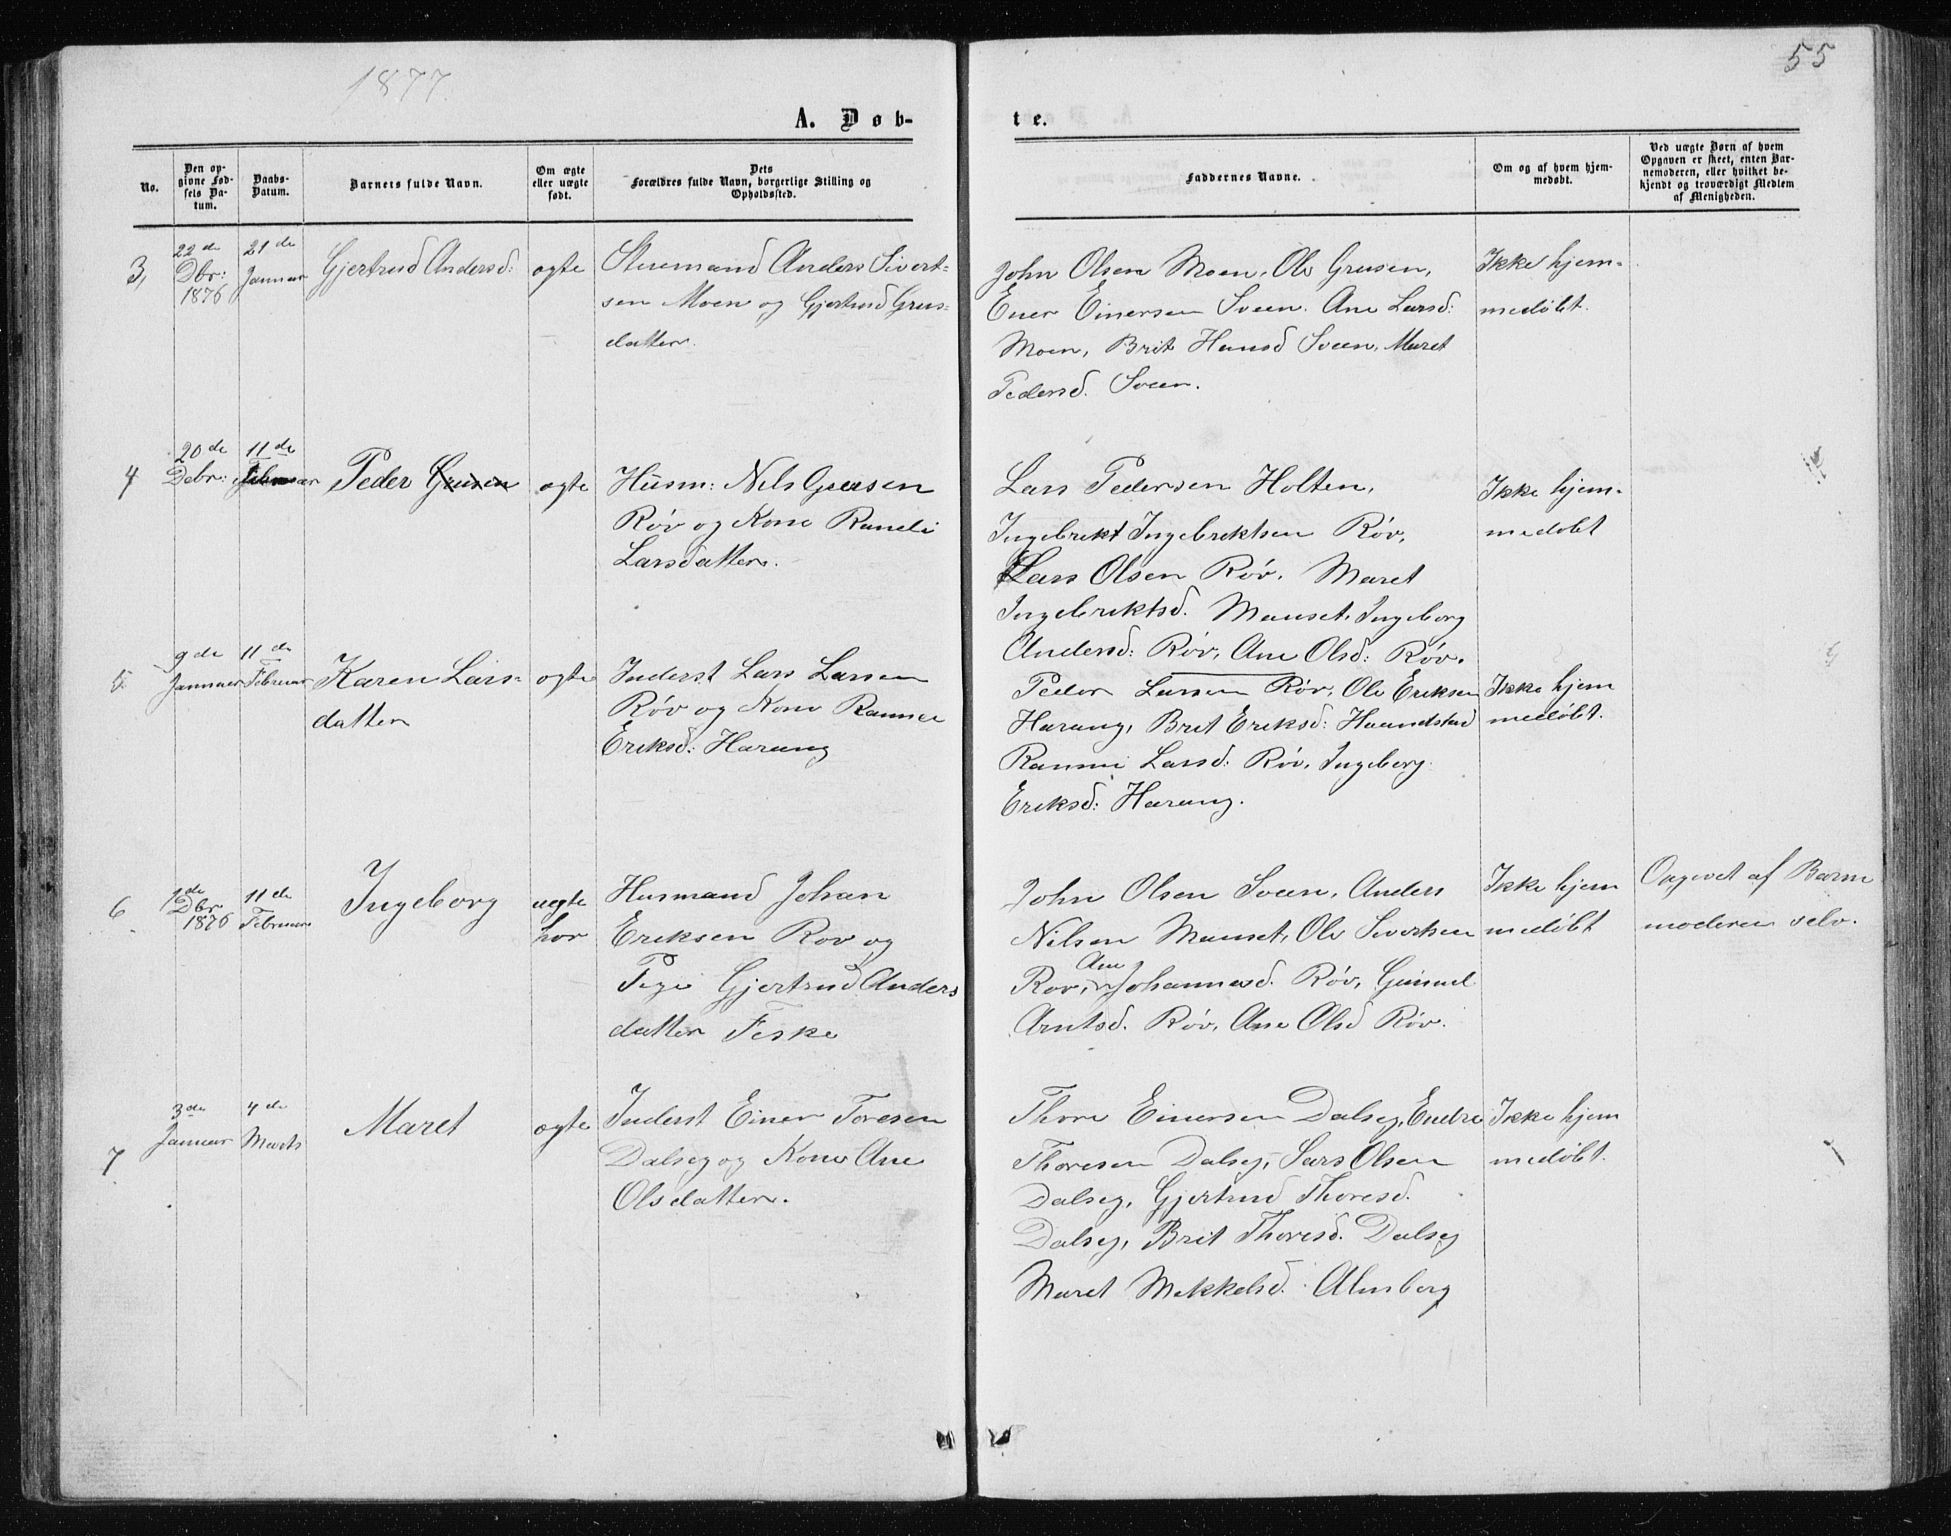 1877.
55
A. Døb-
te.
No.
Den op-
givne Fød-
sels Da-
tum.
Daabs-
Datum.
Barnets fulde Navn.
Om ægte
eller uægte
født.
Dets
Forældres fulde Navn, borgerlige Stilling og
Opholdssted.
Faddernes Navne.
Om og af hvem hjem-
medøbt.
Ved uægte Børn af hvem
Opgaven er skeet, enten Bar-
nemoderen, eller hvilket be-
kjendt og troværdigt Medlem
af Menigheden.
3,
22de
Dbr:
1876
21de
Januar
Gjertrud Andersd:
ægte
Anders Sivert-
sen Moen og Gjertrud Grus-
datter.
John Olsen Moen, Ole Grusen,
Ener Einersen Sveen. Ane Larsd:
Moen, Brit Hansd Sveen, Maret
Pedersd. Sveen.
Ikke hjem-
medøbt.
4
20de
Debr:
11de
Februar
Peder Grusen
ægte
Husm: Nils Grusen
Røv og Kone Randi
Larsdatter.
Lars Pedersen Holten,
Ingebrikt Ingebriktsen Røv,
Lars Olsen Røv. Maret
Ingebriktsd. Mauset, Ingeborg
Andersd: Røv, Ane Olsd: Røv.
Ikke hjem-
medøbt
5.
9de
Januar
11de
Februar
Karen Lars-
datter
ægte
Inderst Lars Larsen
Røv og Kone Rannei
Eriksd: Harang
Peder Larsen Røv, Ole Eriksen
Harang, Brit Eriksd: Haandstad
Rannei Larsd: Røv, Ingeborg
Eriksd: Harang.
Ikke hjem
medøbt.
6
1de
Dbr
1876
11de
Februar
Ingeborg
uægte
hor
Husmand Johan
Eriksen Røv og
Pige Gjertrud Anders
datter Feske
John Olsen Sveen, Anders
Nilsen Mauset, Ole Sivertsen
Røv, Ane Johannesd. Røv, Gunnel
Arntsd. Røv, Ane Olsd Røv.
Ikke hjem
medøbt
Opgivet af Barne
moderen selv.
7
3de
Januar
4de
Marts
Maret
ægte
Inderst Einer Toresen
Dalseg og Kone Ane
Olsdatter.
Thore Einersen Dalseg, Endre
Thoresen Dalseg, Lars Olsen
Dalseg, Gjertrud Thoresd.
Dalseg, Brit Thoresd. Dalseg
Maret Mikkelsd. Almberg
Ikke hjem
medøbt.